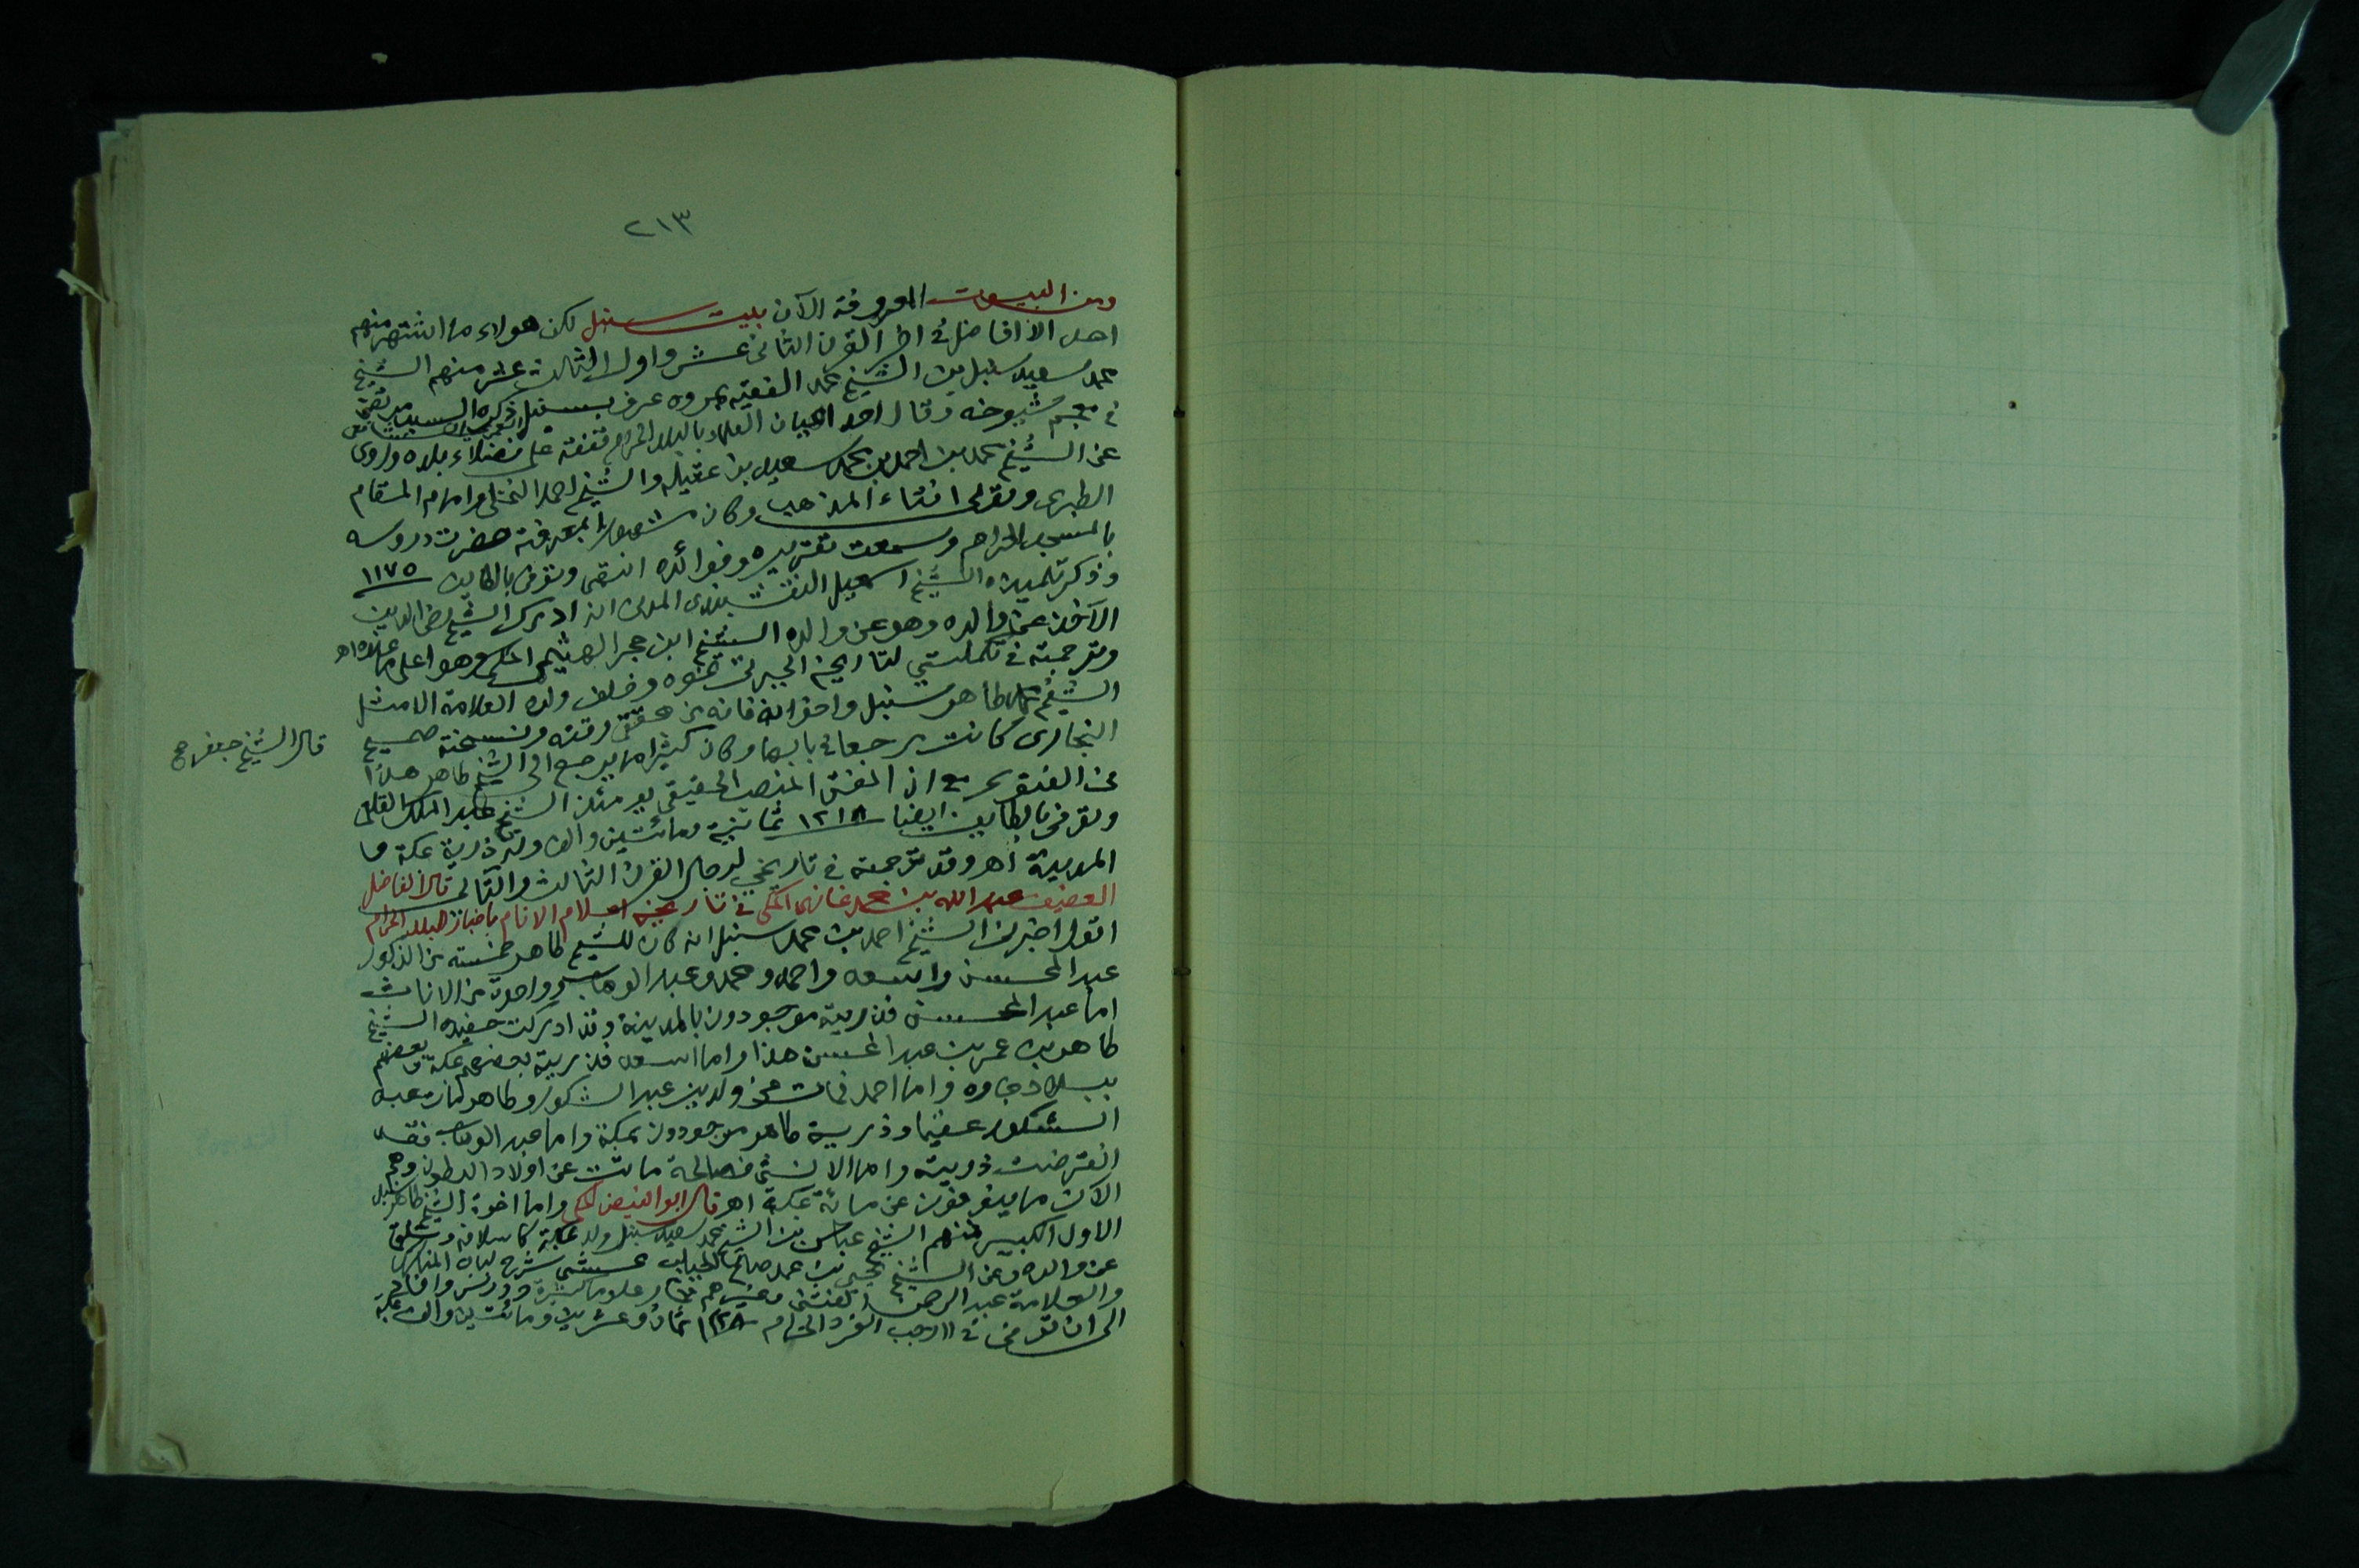 ٢١٣
ومن البيوت المعروفة الآن بيت سنبل لكن هولاء ما اشتهر منهم
اهل الافاضل في اخر القرن الثاني عشر واول الثالث عشر منهم الشيخ
محمد سعيد سنبل بن الشيخ محمد الفقيه عرف بسنبل ذكره السيد مرتضى
في معجم شيوخه وقال احد اعيان العلماء بالبلد الحرام تفقه على فضلاء بلده وروى
عن الشيخ محمد بن احمد بن محمد سعيد بن عقيله والشيخ احمد النخلي وامام المقام
الطبري وتولى افتاء المذهب وكان مشهورا بمعرفته حضرت دروسه
بالمسجد الحرام وسمعت تقريره وفوائده انتهى وتوفى بالطايف ١١٧٥
وذكر تلميذه الشيخ اسمعيل النقشبندي المدني انه ادرك الشيخ رضى الدين
الآخذ عن والده وهو عن والده الشيخ ابن حجر الهيثمي المكي وهو اعلى ما عنده اهـ
وترجمته في تكملتي لتاريخ الجبرتي وخلف ولده العلامة الامثل
الشيخ محمد طاهر سنبل واخوانه فانه من محققي وقته ونسخته صحيح
البخاري كانت مرجعا في بابها وكان كثيرا ما يرجع الى الشيخ طاهر هذا
قال الشيخ جعفر
عن الفتوى مع ان المفتى المنصب الحقيقي يومئذ الشيخ عبد الملك القلعي
وتوفى بالطايف ايضا ١٢١٨ ثمانية ومائتين والف وله ذرية بمكة و
المدينة اهـ وقد ترجمته في تاريخي لرجال القرن الثالث والتالي قال الفاضل
العفيف عبد الله بن محمد غازي المكي في تاريخه اعلام الانام باخبار البلد الحرام
اقول اخبرني الشيخ احمد بن محمد سنبل انه كان للشيخ طاهر خمسة من الذكور
عبد المحسن واسعد واحمد ومحمد وعبد الوهاب وواحدة من الاناث
اما عبد المحسن فذريته موجودون بالمدينة وقد ادركت حفيده الشيخ
طاهر بن عمر بن عبد المحسن هذا واما اسعد فذريته بعضهم بمكة وبعضهم
ببلاد جاوه واما احمد فمات عن ولدين عبد الشكور وطاهر فمات عبد
الشكور عقيما وذرية طاهر موجودون بمكة واما عبد الوهاب فقد
انقرضت ذريته واما الانثى فصالحة ماتت عن اولاد البطون وهم
الآن ما ينوفون عن مائة بمكة اهـ قال ابو الفيض المكي واما اخوة الشيخ طاهر سنبل
الاول الكبير فمنهم الشيخ عباس بن الشيخ محمد سعيد سنبل ولد بمكة كاسلافه وتلقى
عن والده وعن الشيخ يحيى بن محمد صالح الحباب محشي شرح لباب المناسك
والعلامة عبد الرحمن الفتني وغيرهم علوما كثيرة ودرس وافاد
الى ان توفى في ١١ رجب الفرد الحرام ١٢٢٨ ثمان وعشرين ومائتين والف بمكة